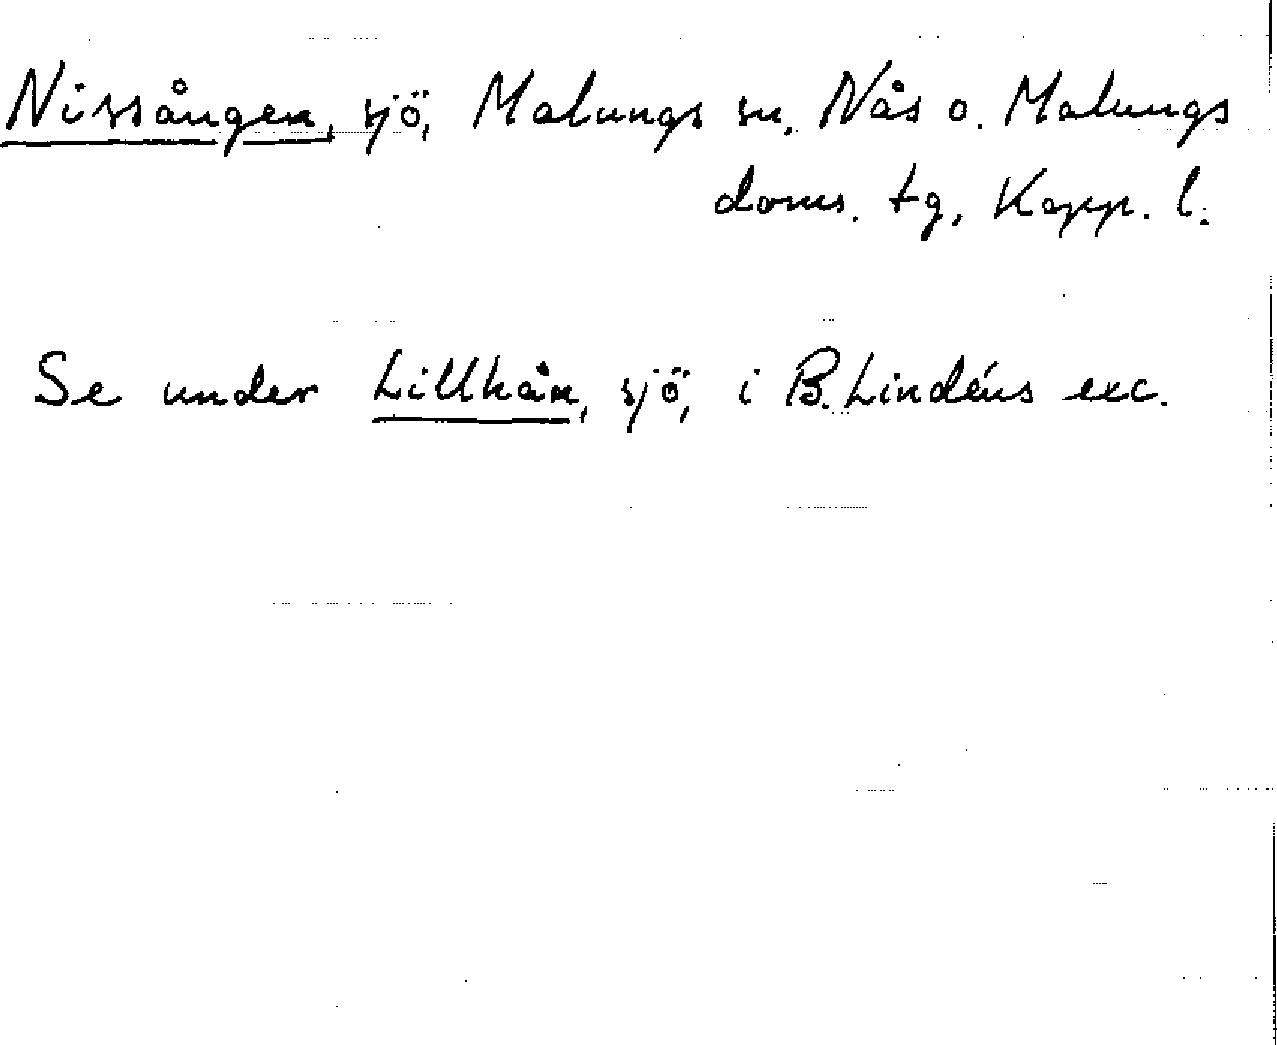 Nissången, sjö, Malungs sn, Nås o. Malungs
doms. tg, Kopp. l.
Se under Lillhån, sjö, i B. Lindéns exc.